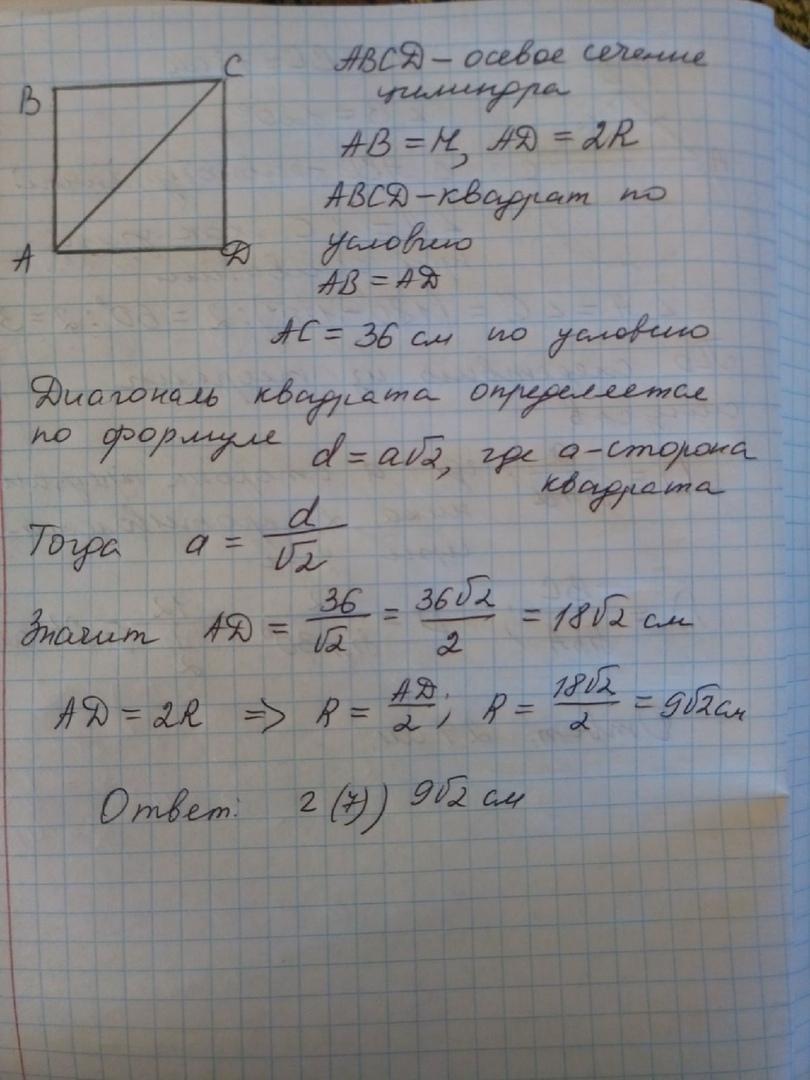 B
C
A
D
ABCD – осевое сечение
цилиндра
AB = H, AD = 2R
ABCD – квадрат по
условию
AB = AD
AC = 36 см по условию
Диагональ квадрата определяется
по формуле d = a√2, где a – сторона
квадрата
Тогда a = d/√2
Значит AD = 36/√2 = 36√2/2 = 18√2 см
AD = 2R => R = AD/2; R = 18√2/2 = 9√2 см
Ответ: 2 (7)) 9√2 см